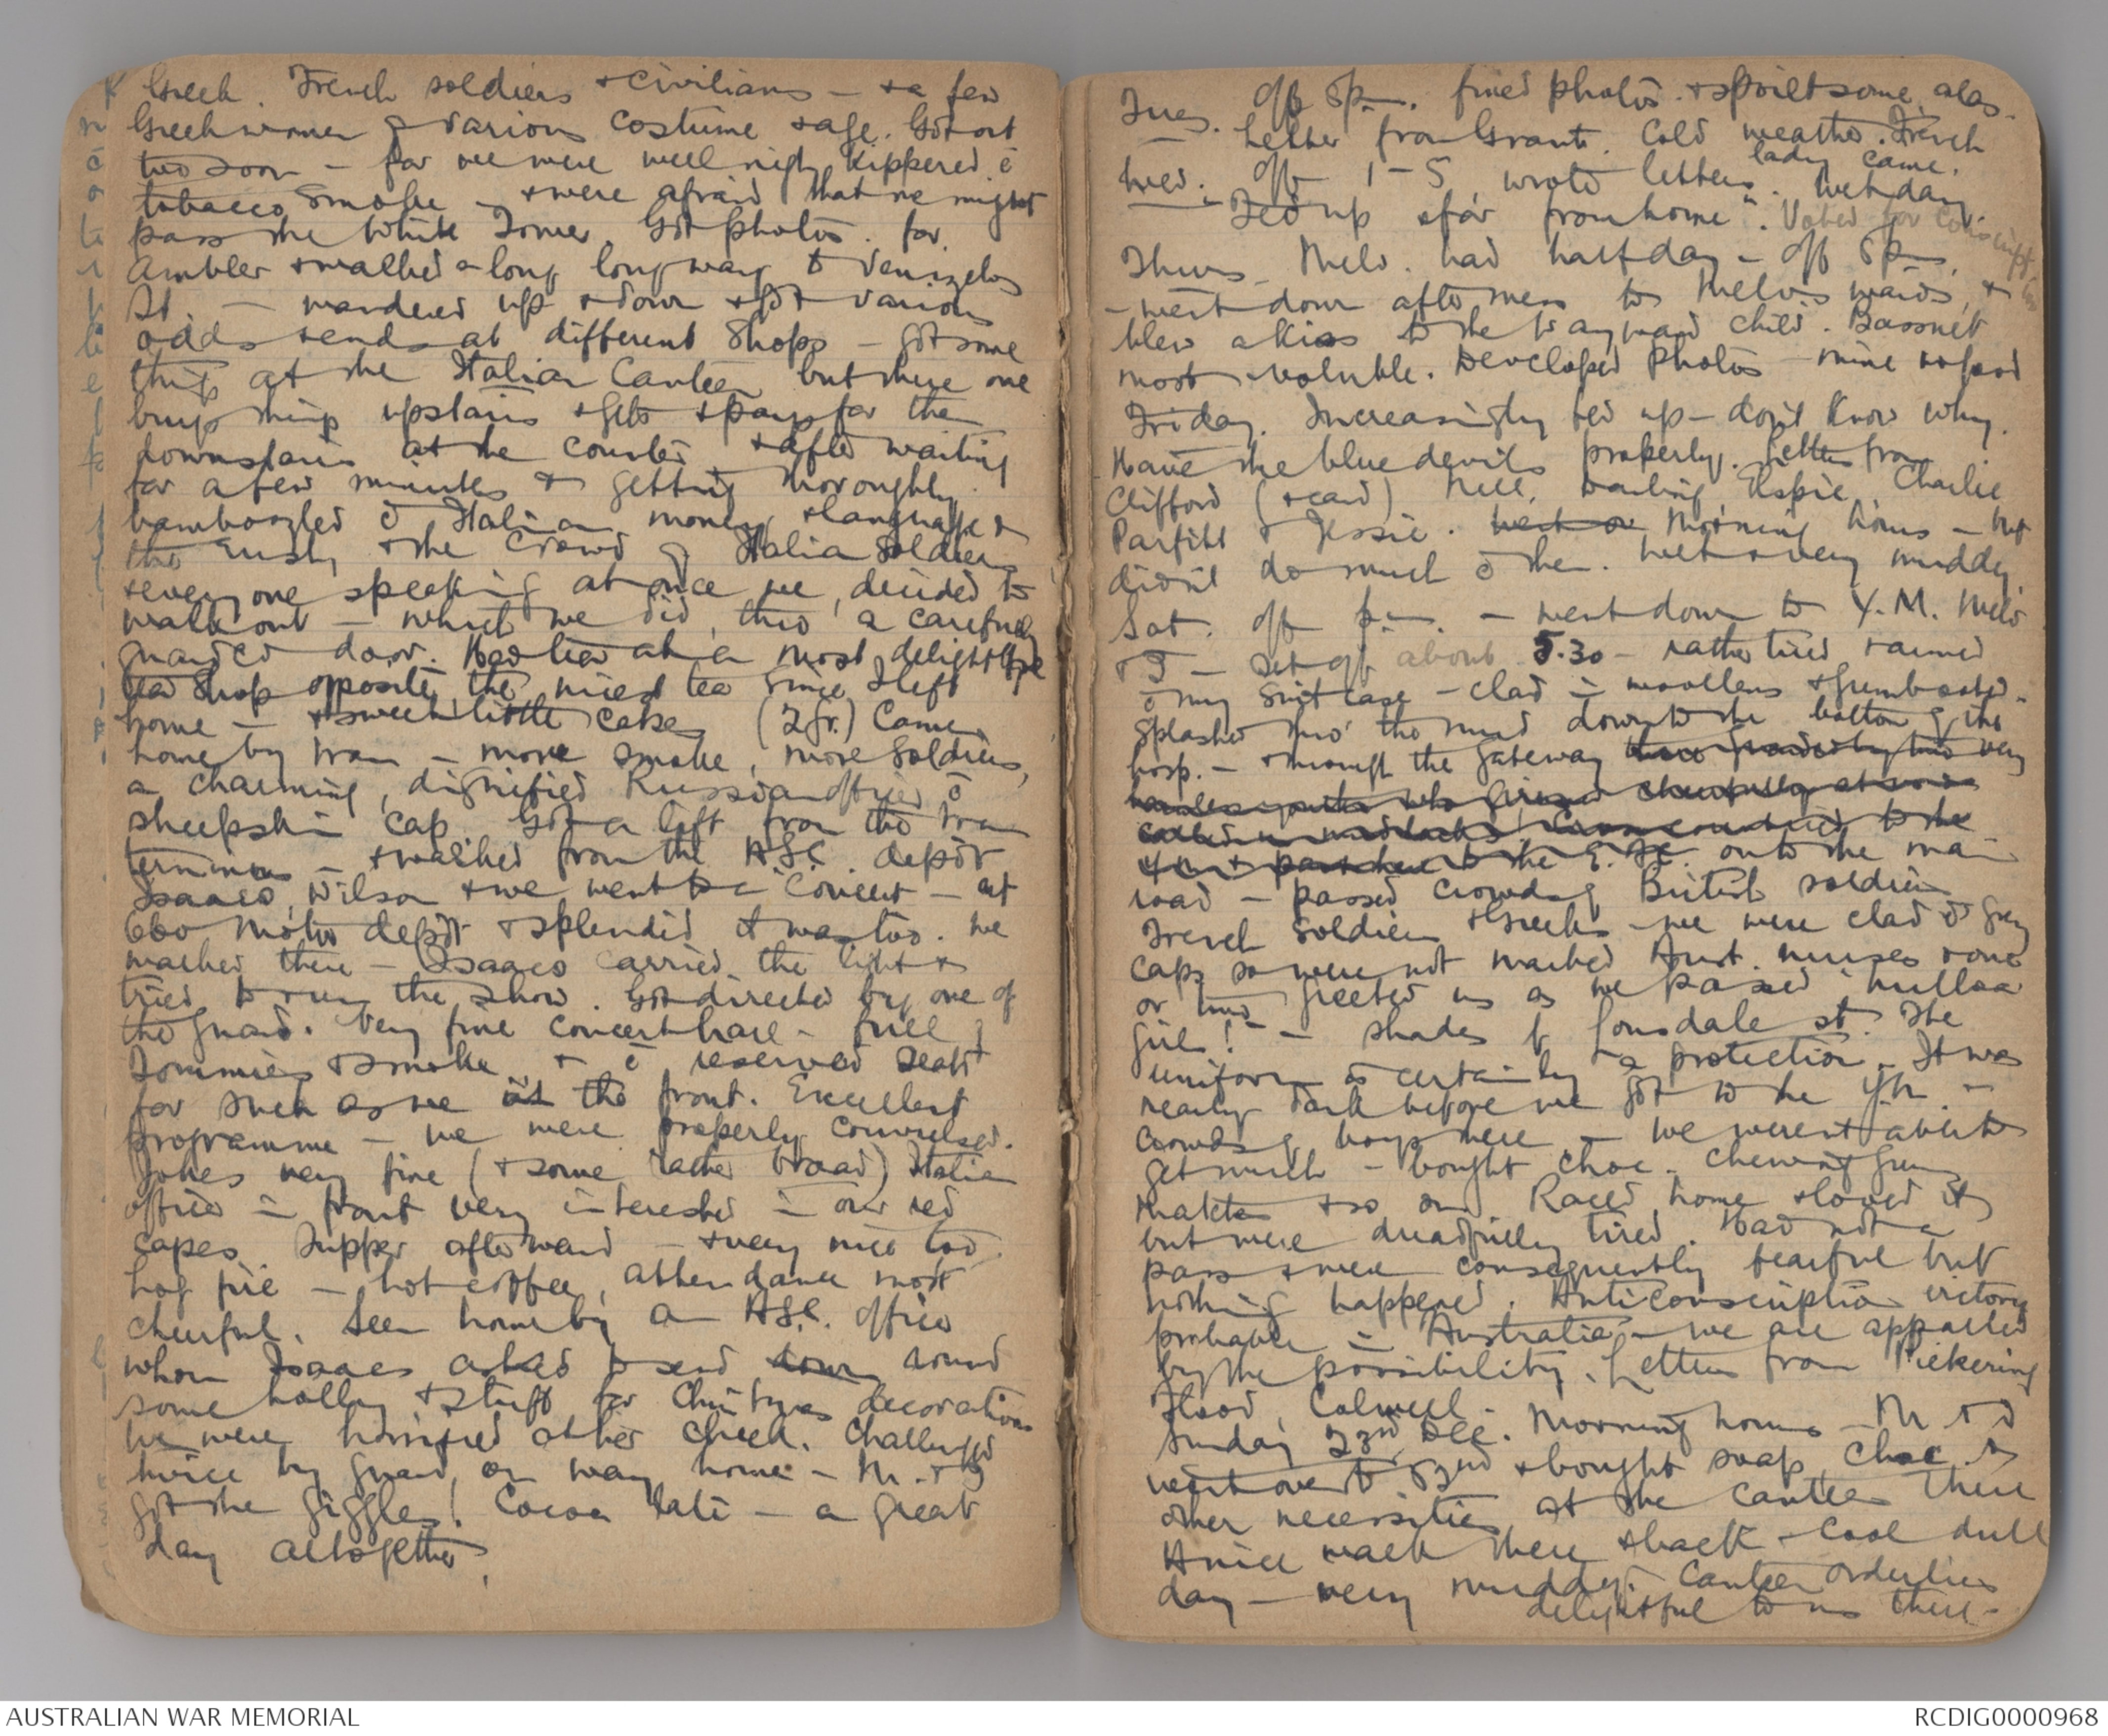 Greek. French soldiers & civilians – & a few
Greek women of various costume & age. Got out
too soon – for we were well nigh kippered c̄
tobacco smoke – & were afraid that we might
pass the White Tower. Got photos. for
Ambler & walked a long long way to Venizelos
St. – wandered up & down & got various
odds & ends at different shops – got some
things at the Italian Canteen but there one
buys things upstairs & gets & pays for them
downstairs at the counter & after waiting
for a few minutes & getting thoroughly
bamboozled c̄ Italian money, & language &
the rush, & the crowd of Italian soldiers
& everyone speaking at once we decided to
walk out – which we did, thro' a carefully
guarded door. Had tea at a most delightful
tea shop opposite, the nicest tea since I left
home – & sweet little cakes (2 fr.) Came
home by tram – more smoke, more soldiers,
a charming, dignified Russian officer c̄
sheepskin cap. Got a lift from the tram
terminus – & walked from the A.S.C. depôt
Isaacs, Wilson & we went to a concert – at
660 Motor depôt & splendid it was too. We
walked there – Isaacs carried the light &
tried to run the show. Got directed by one of
the guard. Very fine concert hall – full of
Tommies & smoke & c̄ reserved seats
for such as we at the front. Excellent
programme – we were properly convulsed.
Jokes very fine (& some rather broad) Italian
officer in front very interested in our red
capes. Supper afterward – & very nice too.
hog fire – hot coffee, attendance most
cheerful. Seen home by an A.S.C. officer
whom Isaacs asked to send down round
some holly & stuff for Christmas decorations
We were horrified at her cheek. Challenged
twice by guard on way home – M. & I
got the giggles! Cocoa late – a great
day altogether.
Tues. off 5 p.m. fixed photos & spoilt some, alas.
– Letter from Grant. Cold weather. French
lady came.
Wed. Off 1–5 wrote letters. Wet day.
– "Fed up & far from home". Voted for conscription
Thurs. Melv. had half day – off 5 p.m.
– went down after mess to Melv's wards, &
blew a kiss to the wayward child. Bassnet
most voluble. Developed photos – mine no good
Friday. Increasingly fed up – don't know why.
Have the blue devils properly. Letters from
Clifford (& card) Nell, Elspie, Charlie
Parfitt & Jessie. went on Morning hours – but
didn't do much c̄ them. Wet & very muddy.
Sat. off p.m. – went down to Y.M. Melv
& I – set off about 5.30 – rather tired & armed
c̄ my suit case – clad in woollens & gumbooted –
splashed thro' the mud down to the bottom of the
hosp. – & through the gateway two very
to the
to the E.F.C. onto the main
road – passed crowds of British soldiers
French soldiers & Greeks – we were clad c̄ grey
caps so were not marked Aust. nurses & one
or two greeted us as we passed "hulloa
girls!" – shades of Lonsdale St. The
uniform is certainly a protection. It was
nearly dark before we got to the Y.M. –
crowds of boys there – we weren't able to
get much – bought choc. chewing gum
matches & so on. Raced home & loved it
but were dreadfully tired. Had not a
pass & were consequently fearful but
nothing happened. Anticonscription victory
probable in Australia – we are appalled
by the possibility. Letters from Pickering
Flood, Colwell.
Sunday 23rd Dec. Morning hours – M & I
went over to 52nd & bought soap, choc. &
other necessities at the canteen there
A nice walk there & back – cool dull
day – very muddy. Canteen orderlies
delightful to us there –
AUSTRALIAN WAR MEMORIAL
RCDIG0000968